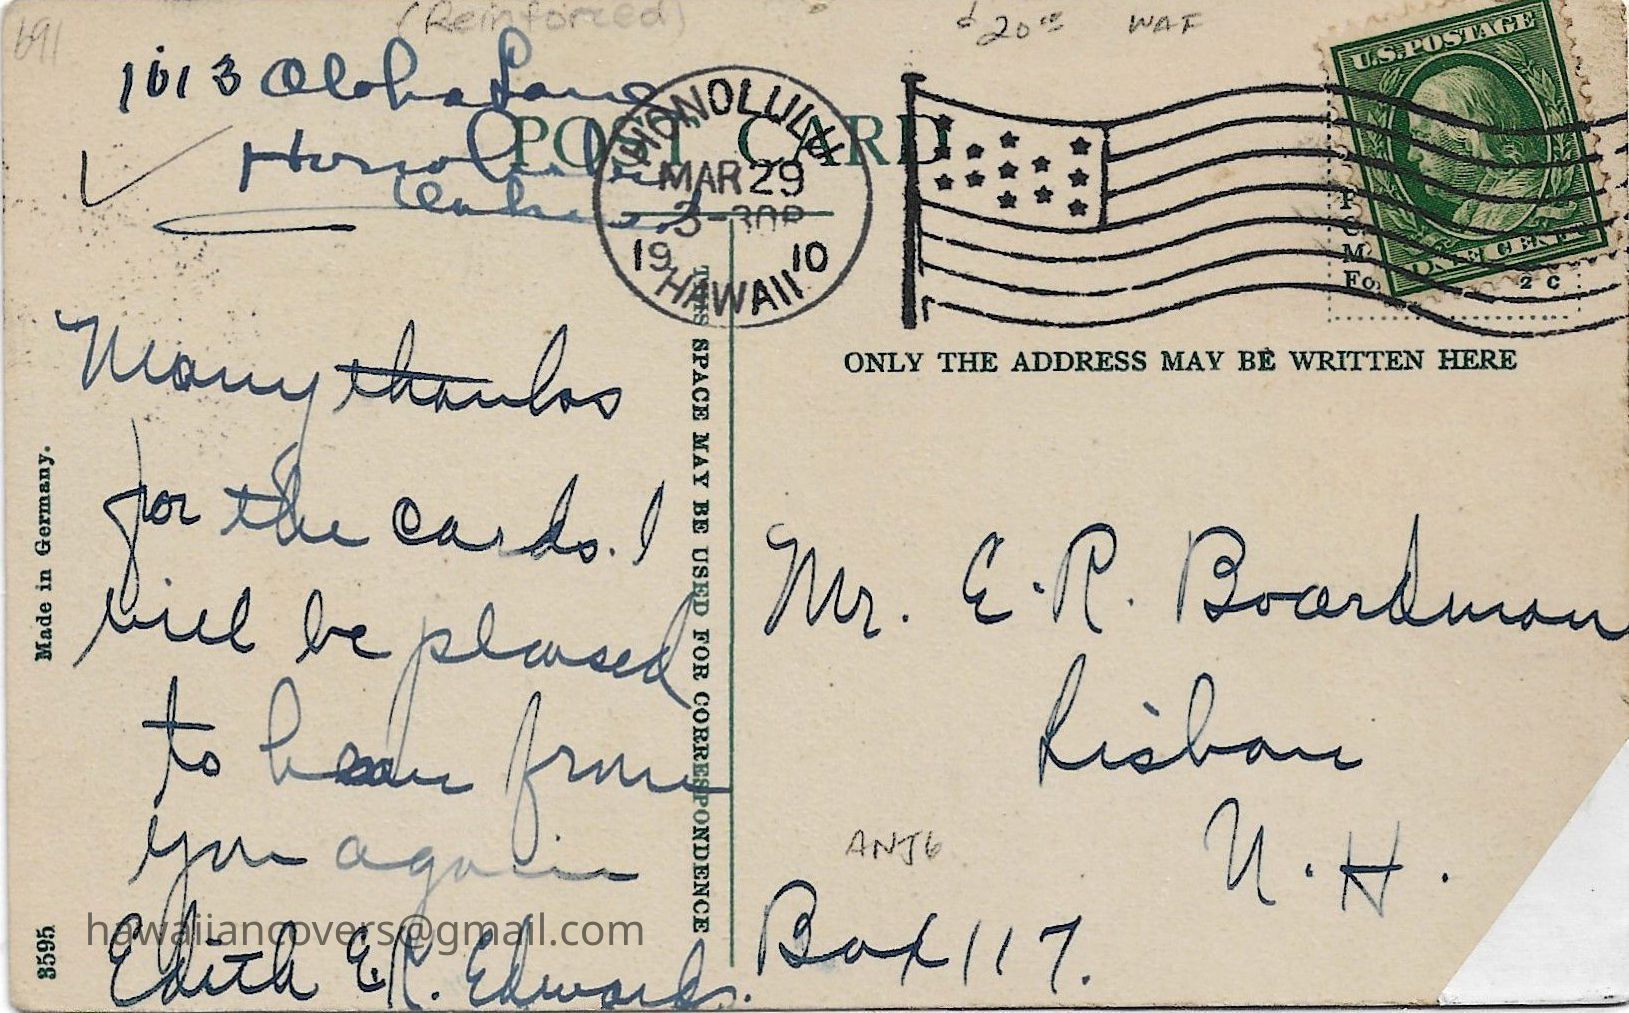 691
(Reinforced)
$20.00 WAF
1013 Aloha Lane
Honolulu
Oahu
POST CARD
HONOLULU
MAR 29
3-30P
1910
HAWAII
U.S. POSTAGE
ONE CENT
2 C
THIS SPACE MAY BE USED FOR CORRESPONDENCE
ONLY THE ADDRESS MAY BE WRITTEN HERE
Made in Germany.
3595
Many thanks
for the cards. I
will be pleased
to hear from
you again
Edith E.R. Edwards.
Mr. E. R. Boardman
Lisbon
N. H.
ANJ6
Box 117.
hawaiiancovers@gmail.com